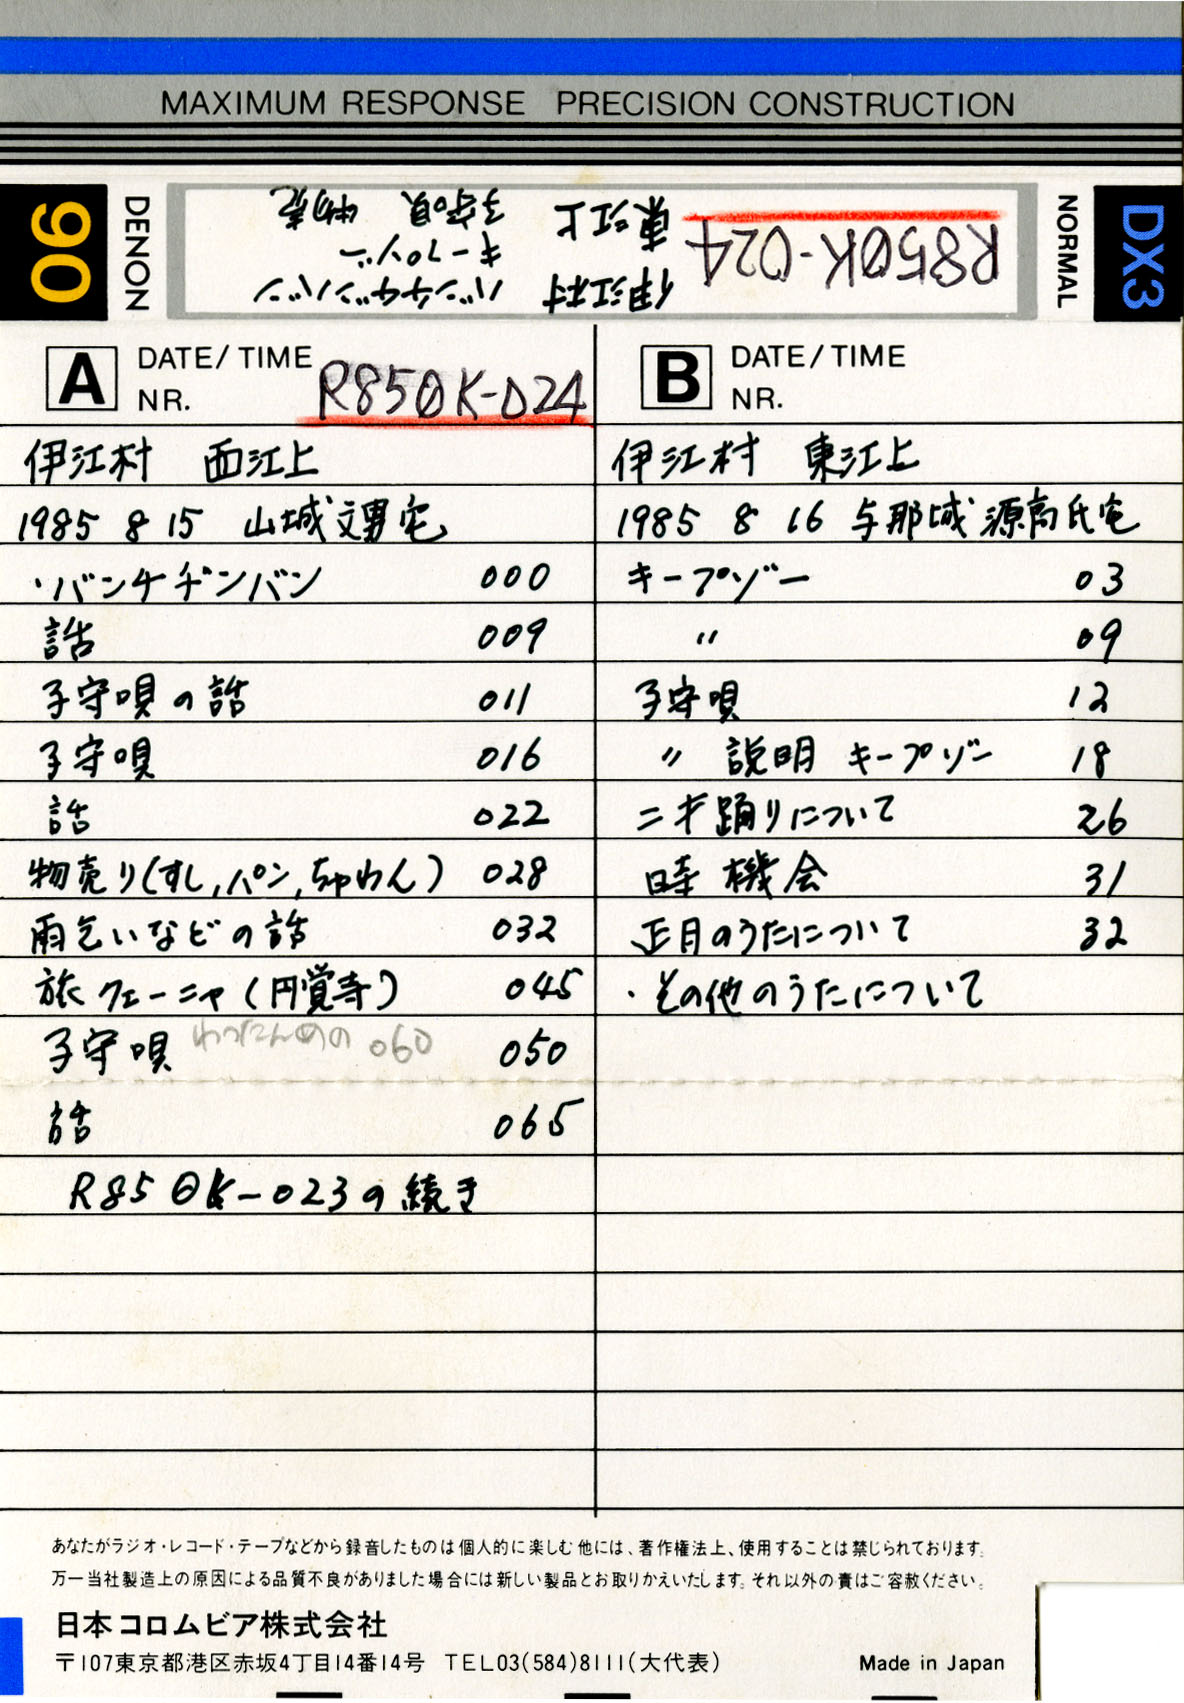 MAXIMUM RESPONSE PRECISION CONSTRUCTION
90
DENON
R850K-024
東江上 子守唄 物売
キープゾー
伊江村 バンチヂンバン
NORMAL
DX3
A DATE/TIME
NR. R850K-024
伊江村 西江上
1985 8 15 山城文男宅
・バンチヂンバン 000
話 009
子守唄の話 011
子守唄 016
話 022
物売り(すし,パン,ちゃわん) 028
雨乞いなどの話 032
旅クェーニャ(円覚寺) 045
子守唄 わったんめの 060 050
話 065
R850K-023の続き
B DATE/TIME
NR.
伊江村 東江上
1985 8 16 与那城源高氏宅
キープゾー 03
〃 09
子守唄 12
〃 説明 キープゾー 18
二才踊りについて 26
時 機会 31
正月のうたについて 32
・その他のうたについて
あなたがラジオ・レコード・テープなどから録音したものは個人的に楽しむ他には、著作権法上、使用することは禁じられております。
万一当社製造上の原因による品質不良がありました場合には新しい製品とお取りかえいたします。それ以外の責はご容赦ください。
日本コロムビア株式会社
〒107東京都港区赤坂4丁目14番14号 TEL03(584)8111(大代表)
Made in Japan